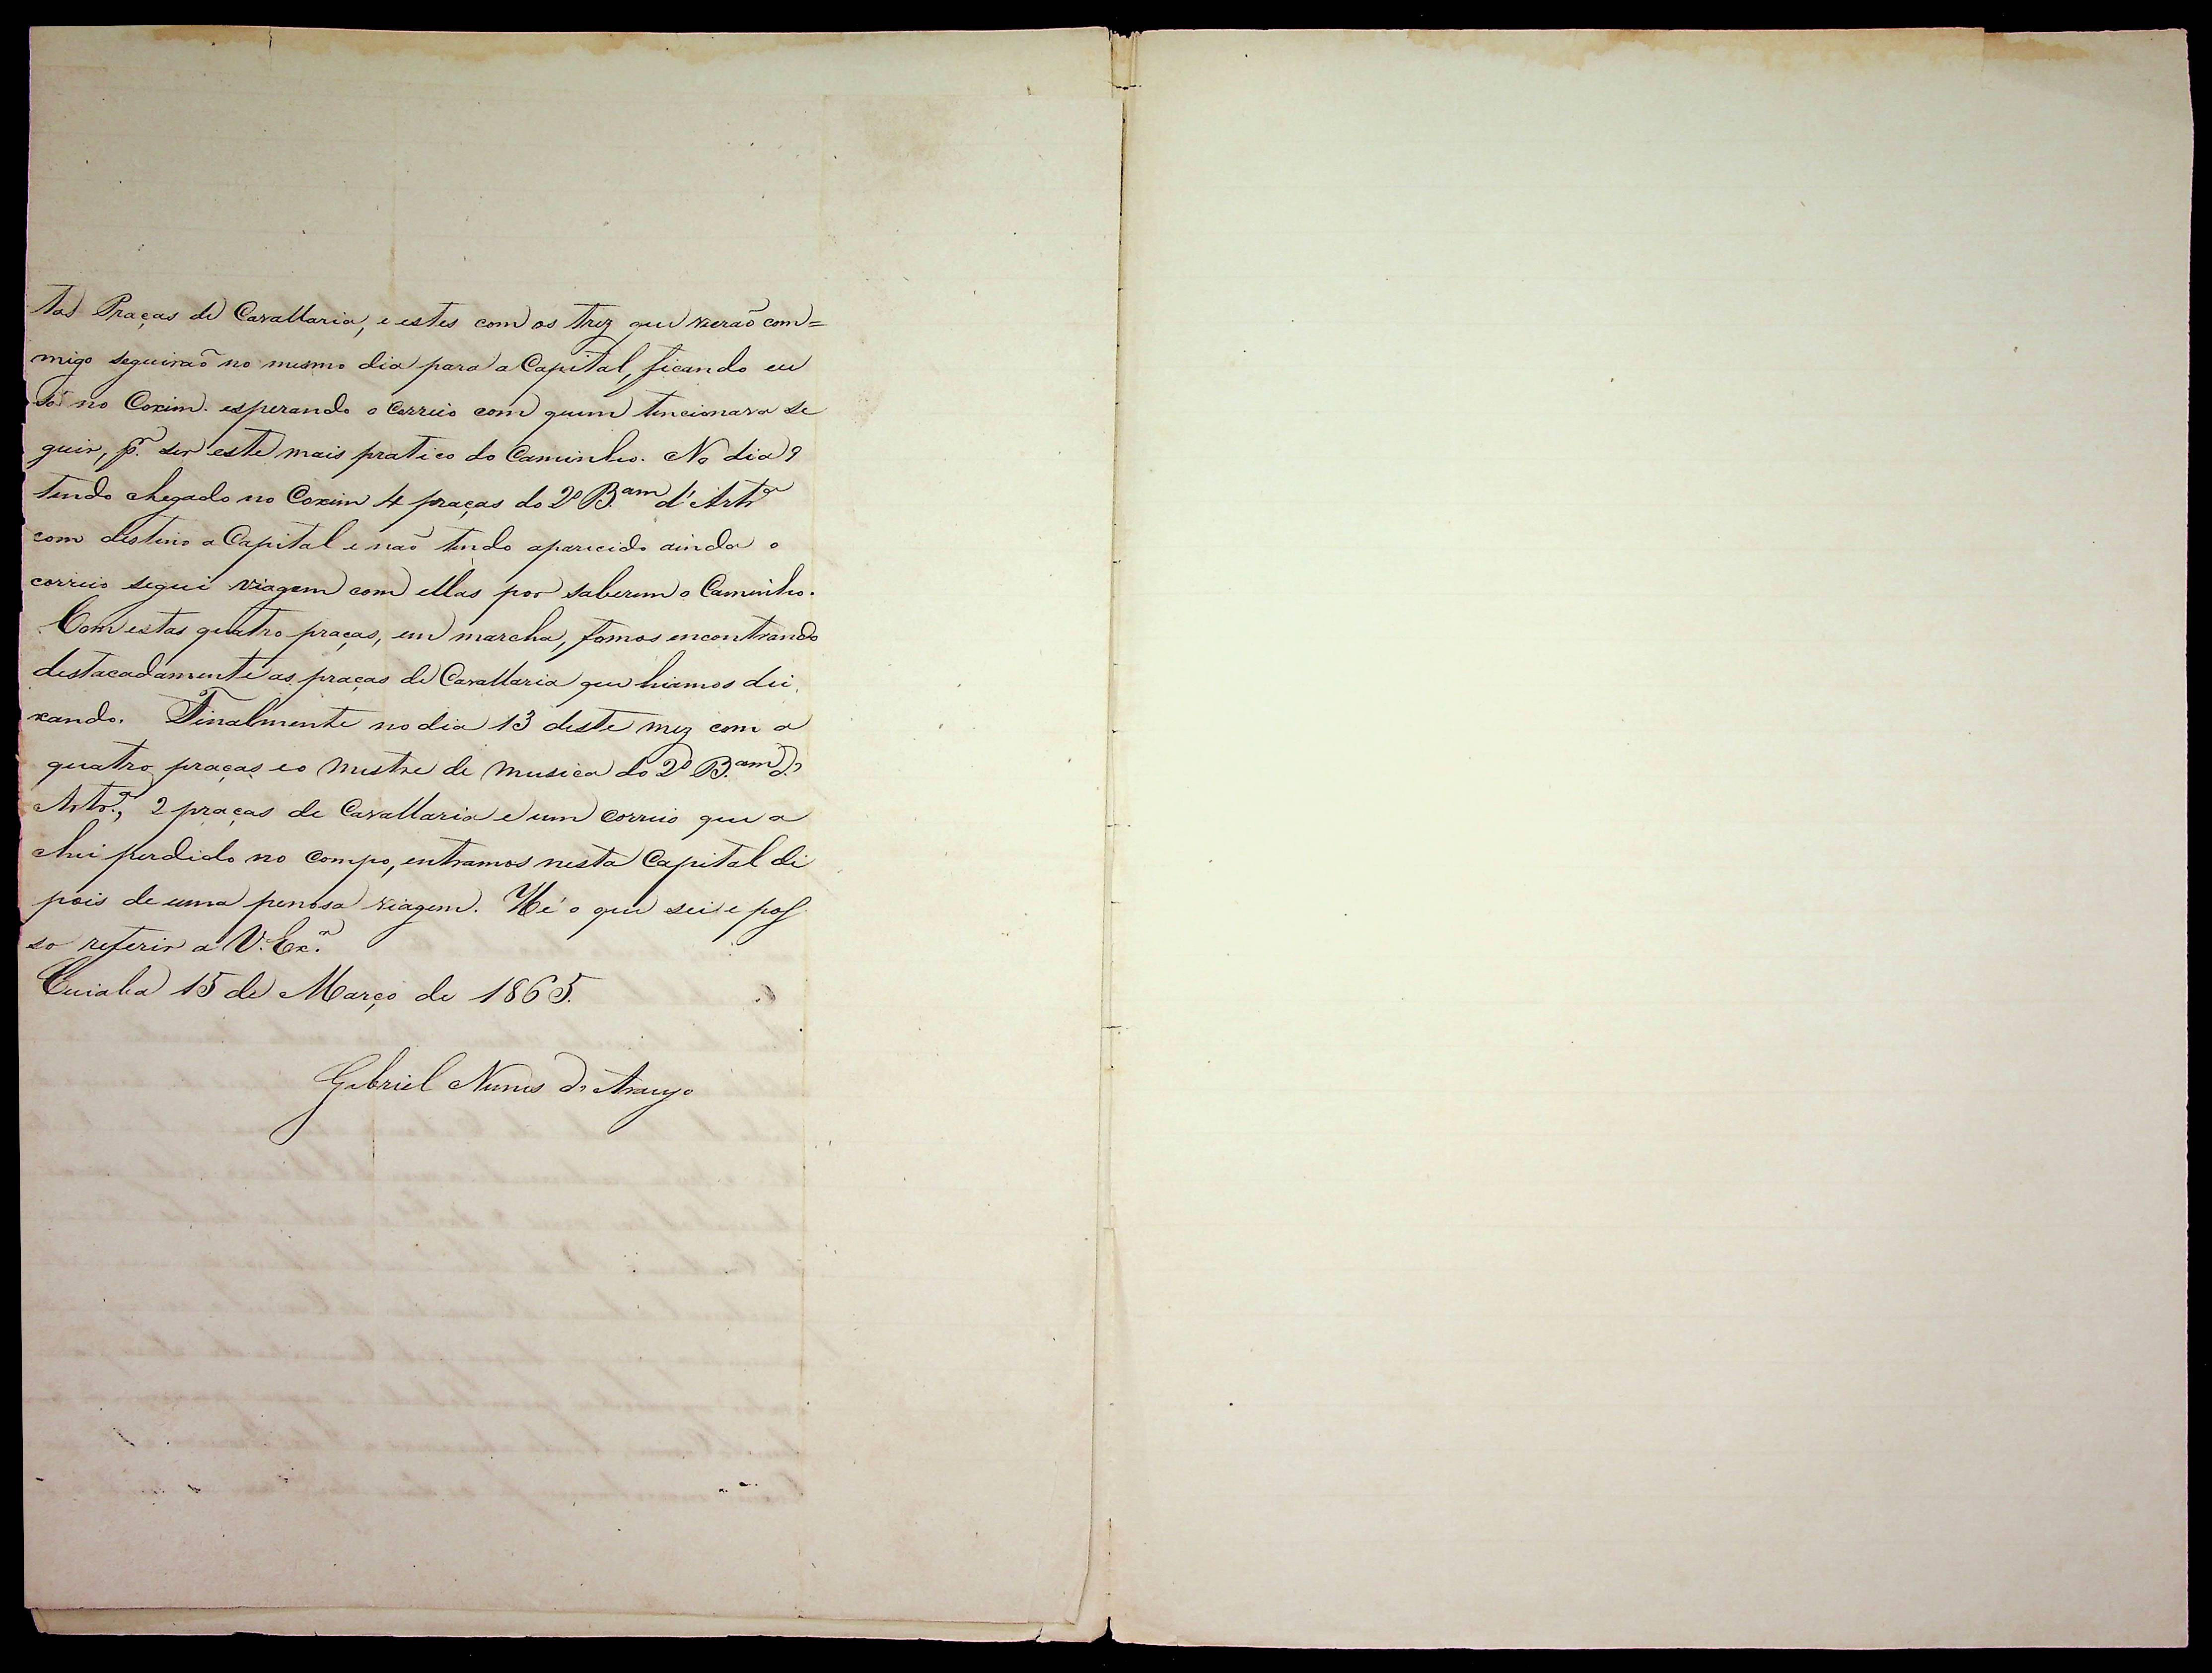 tas Praças de Cavallaria, e estes com os trez que vierão com=
migo seguirão no mesmo dia para a Capital, ficando eu
só no Coxim esperando o Correio com quem tencionava se
guir, pr. ser este mais pratico do Caminho. No dia 9
tendo chegado no Coxim 4 praças do 2º B.am d'Artrª
com destino a Capital e não tendo aparecido ainda o
correio segui viagem com ellas por saberem o Caminho.
Com estas quatro praças, em marcha, fomos encontrando
destacadamente as praças de Cavallaria que hiamos dei
xando. Finalmente no dia 13 deste mez com a
quatro praças e o Mestre de Musica do 2º B.am d'
Artr.ª, 2 praças de Cavallaria e um Correio que a
chei perdido no Campo, entramos nesta Capital de
pois de uma penosa viagem. Hé o que sei e pos
so referir a V. Ex.ª
Cuiaba 15 de Março de 1865.
Gabriel Nunes de Araujo